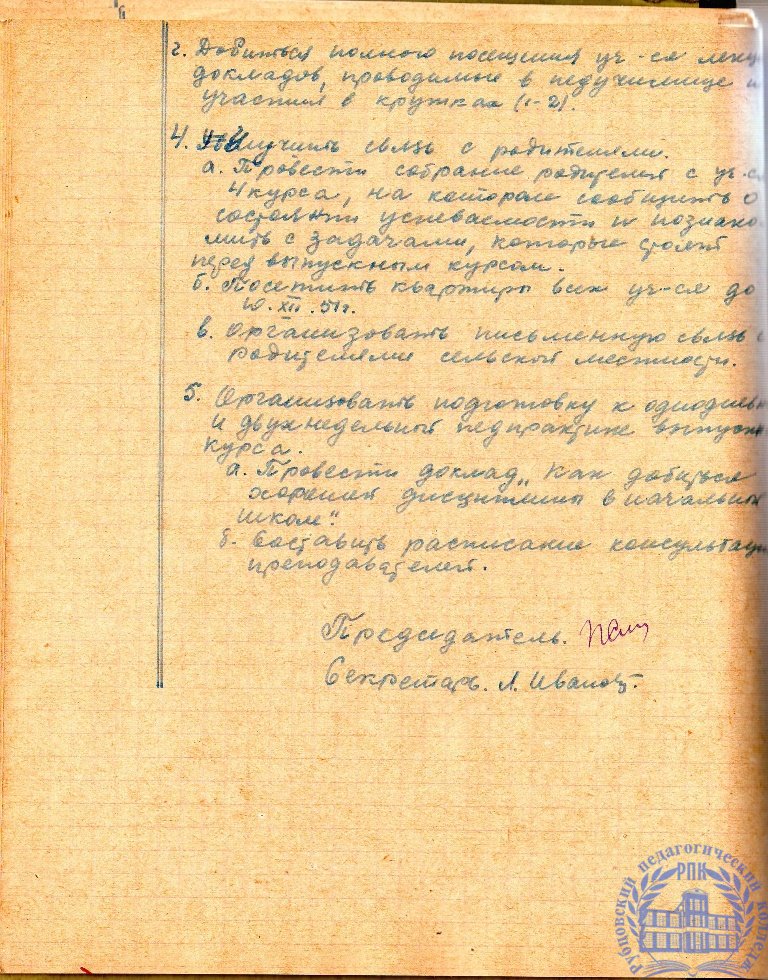 г. Добиться полного посещения уч-ся лекц
докладов, проводимые в педучилище и
участия в кружках (1-2).
4. Улучшить связь с родителями.
а. Провести собрание родителей с уч-ся
4 курса, на котором сообщить о
состоянии успеваемости и познако-
мить с задачами, которые стоят
перед выпускным курсом.
б. Посетить квартиры всех уч-ся до
10.XII.51г.
в. Организовать письменную связь с
родителями сельской местности.
5. Организовать подготовку к однодневн
и двухнедельной педпрактике выпускн
курса.
а. Провести доклад „Как добиться
хорошей дисциплины в начальной
школе".
б. Составить расписание консультаци
преподавателей.
Председатель.
Секретарь. Л. Иванов
РПК
педагогический колледж